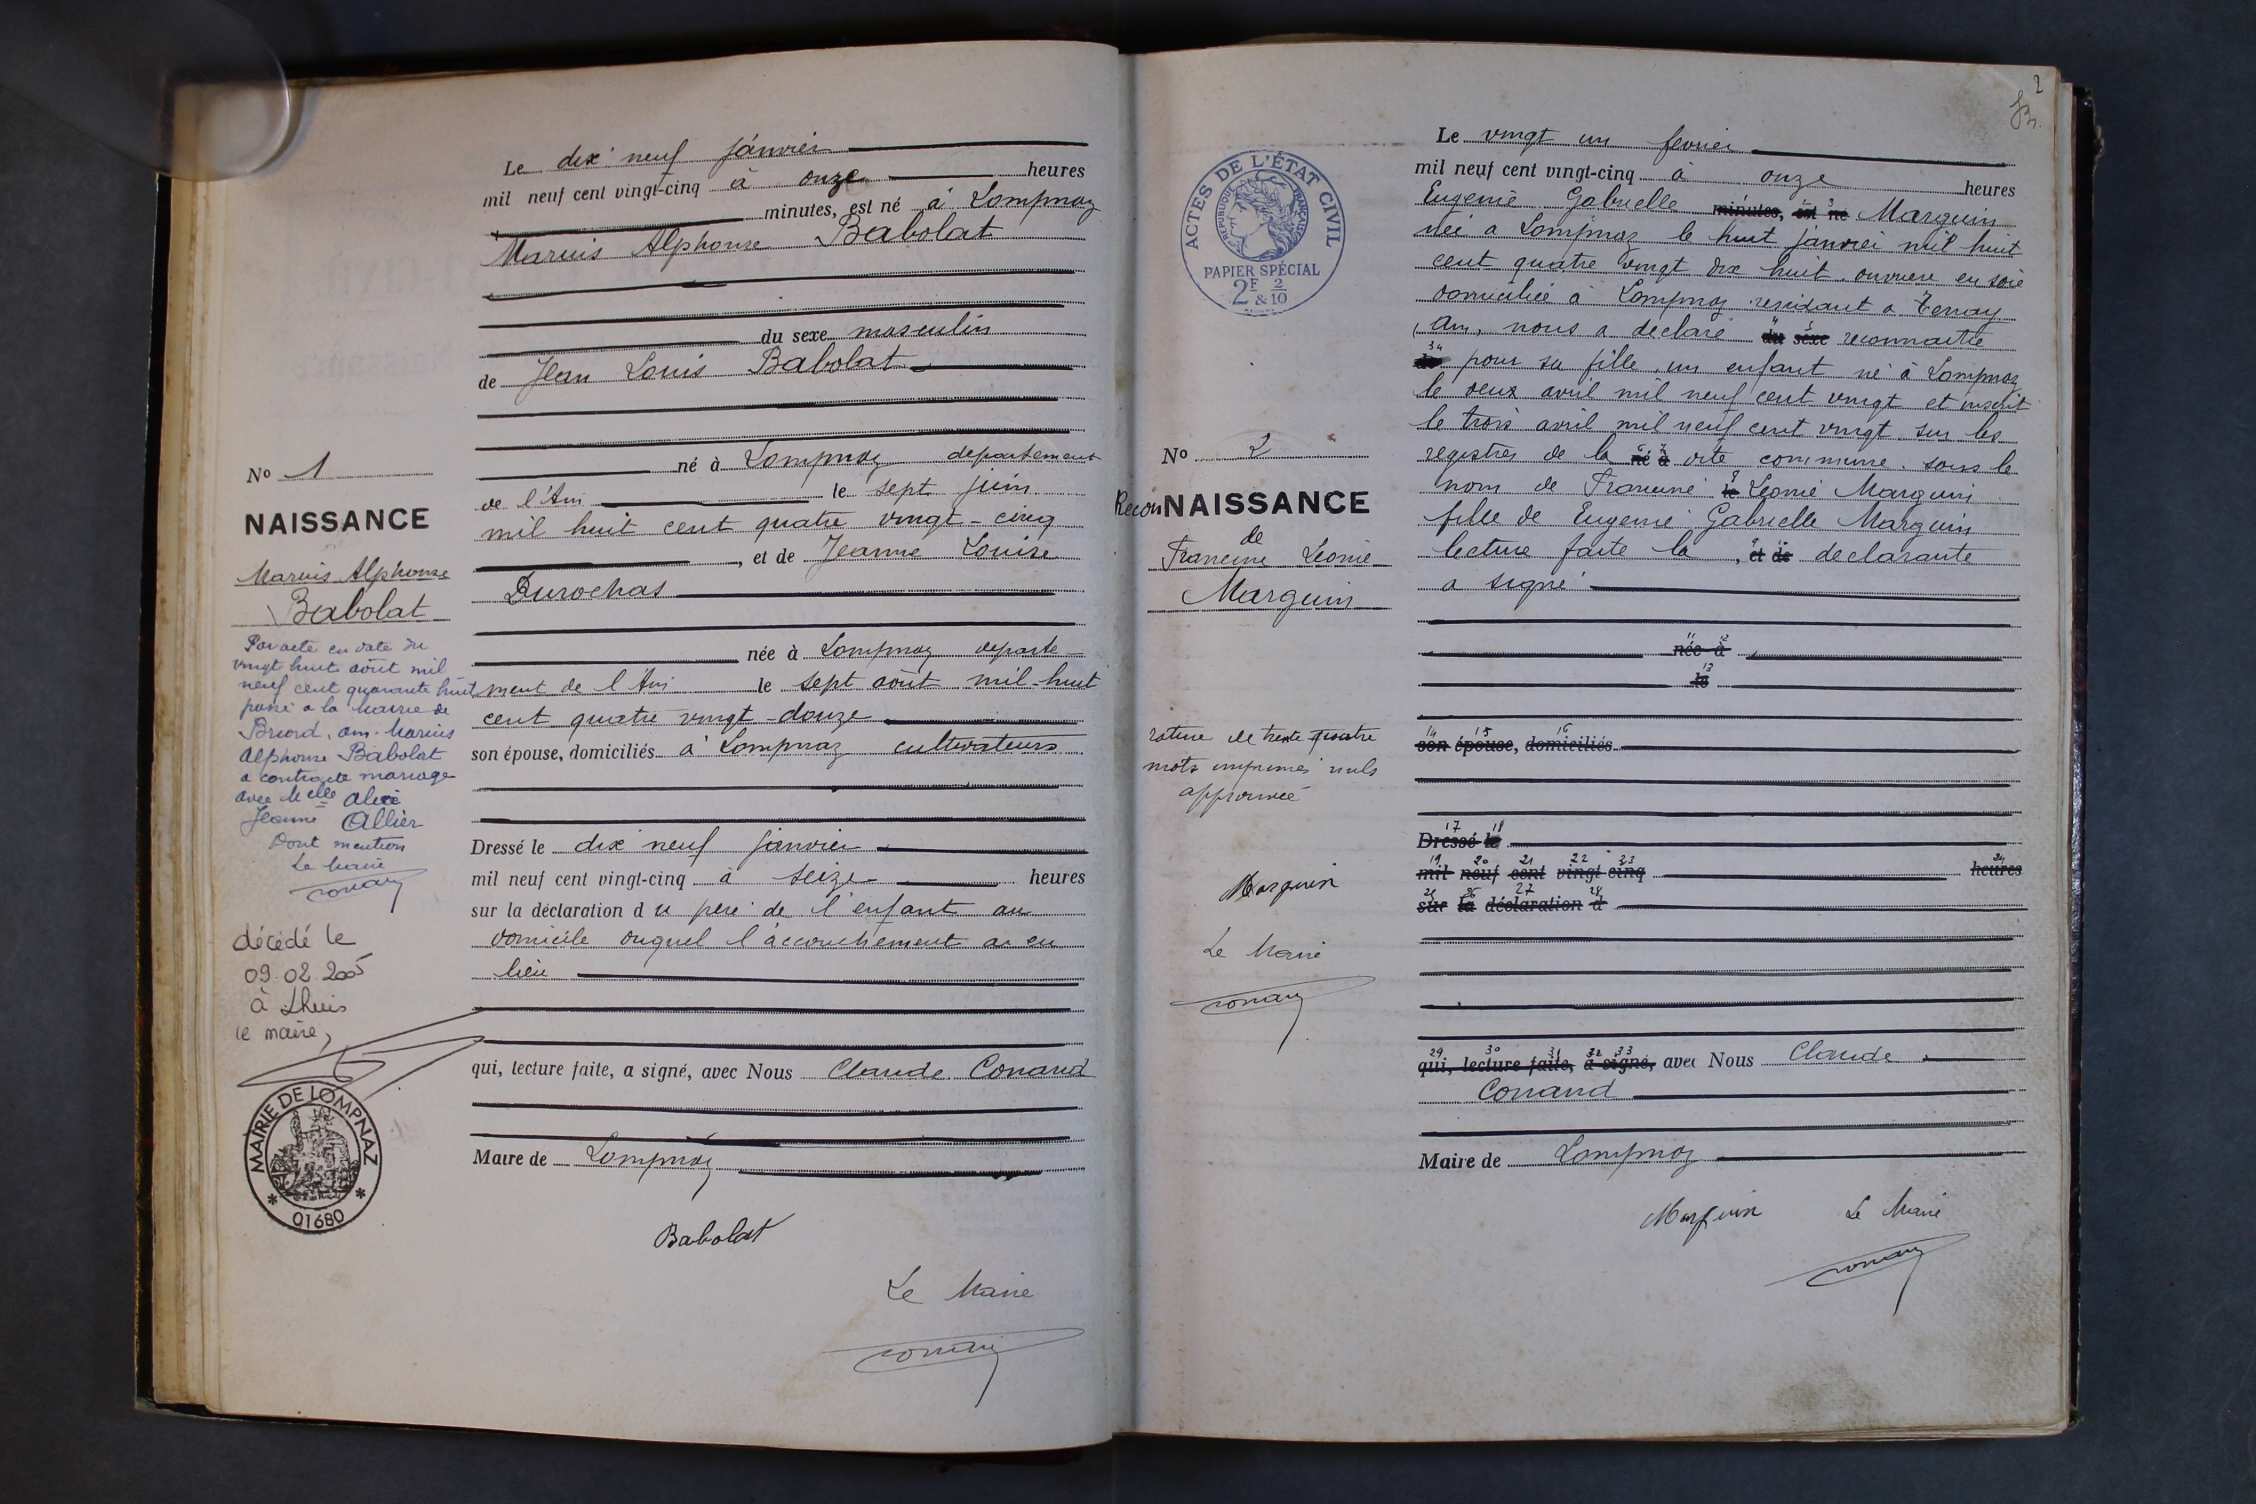 Le dix neuf janvier
mil neuf cent vingt-cinq à onze heures
minutes, est né à Lompnaz
Marius Alphonse Babolat
du sexe masculin
de Jean Louis Babolat
né à Lompnaz departement
de l'Ain le sept juin
mil huit cent quatre vingt-cinq
, et de Jeanne Louise
Durochas
née à Lompnaz departe-
ment de l'Ain le sept août mil-huit
cent quatre vingt-douze
son épouse, domiciliés à Lompnaz cultivateurs
Dressé le dix neuf janvier
mil neuf cent vingt-cinq à seize heures
sur la déclaration d u père de l'enfant au
domicile duquel l'accouchement a eu
lieu
qui, lecture faite, a signé, avec Nous Claude Conand
Maire de Lompnaz
Babolat
Le Maire
Conand
No 1
NAISSANCE
Marius Alphonse
Babolat
Par acte en date du
vingt huit août mil
neuf cent quarante huit
passé a la mairie de
Briord, ain. Marius
Alphonse Babolat
a contracté mariage
avec Melle Alice
Jeanne Allier
Dont mention
Le Maire
Conand
décédé le
09.02.2005
à Lhuis
le maire,
MAIRIE DE LOMPNAZ
* 01680 *
2
ACTES DE L'ÉTAT CIVIL
RÉPUBLIQUE FRANÇAISE
PAPIER SPÉCIAL
2F & 2/10
No 2
ReconNAISSANCE
de
Francine Léonie
Marguin
rature de trente quatre
mots imprimés nuls
approuvée
Marguin
Le Maire
Conand
Le vingt un fevrier
mil neuf cent vingt-cinq à onze heures
Eugenie Gabrielle minutes, est né Marguin
née a Lompnaz le huit janvier mil huit
cent quatre vingt dix huit ouvriere en soie
domiciliée à Lompnaz residant a Tenay
Ain, nous a déclaré du sexe reconnaitre
34 de pour sa fille, un enfant né à Lompnaz
le deux avril mil neuf cent vingt et inscrit
le trois avril mil neuf cent vingt sur les
registres de la né à dite commune sous le
nom de Francine le Léonie Marguin
fille de Eugenie Gabrielle Marguin
lecture faite la , et de declarante
a signé
11 12
née à
13
le
14 15 16
son épouse, domiciliés
17 18
Dressé le
19 20 21 22 23 24
mil neuf cent vingt-cinq heures
25 26 27 28
sur la déclaration d
29 30 31 32 33
qui, lecture faite, a signé, avec Nous Claude
Conand
Maire de Lompnaz
Marguin Le Maire
Conand